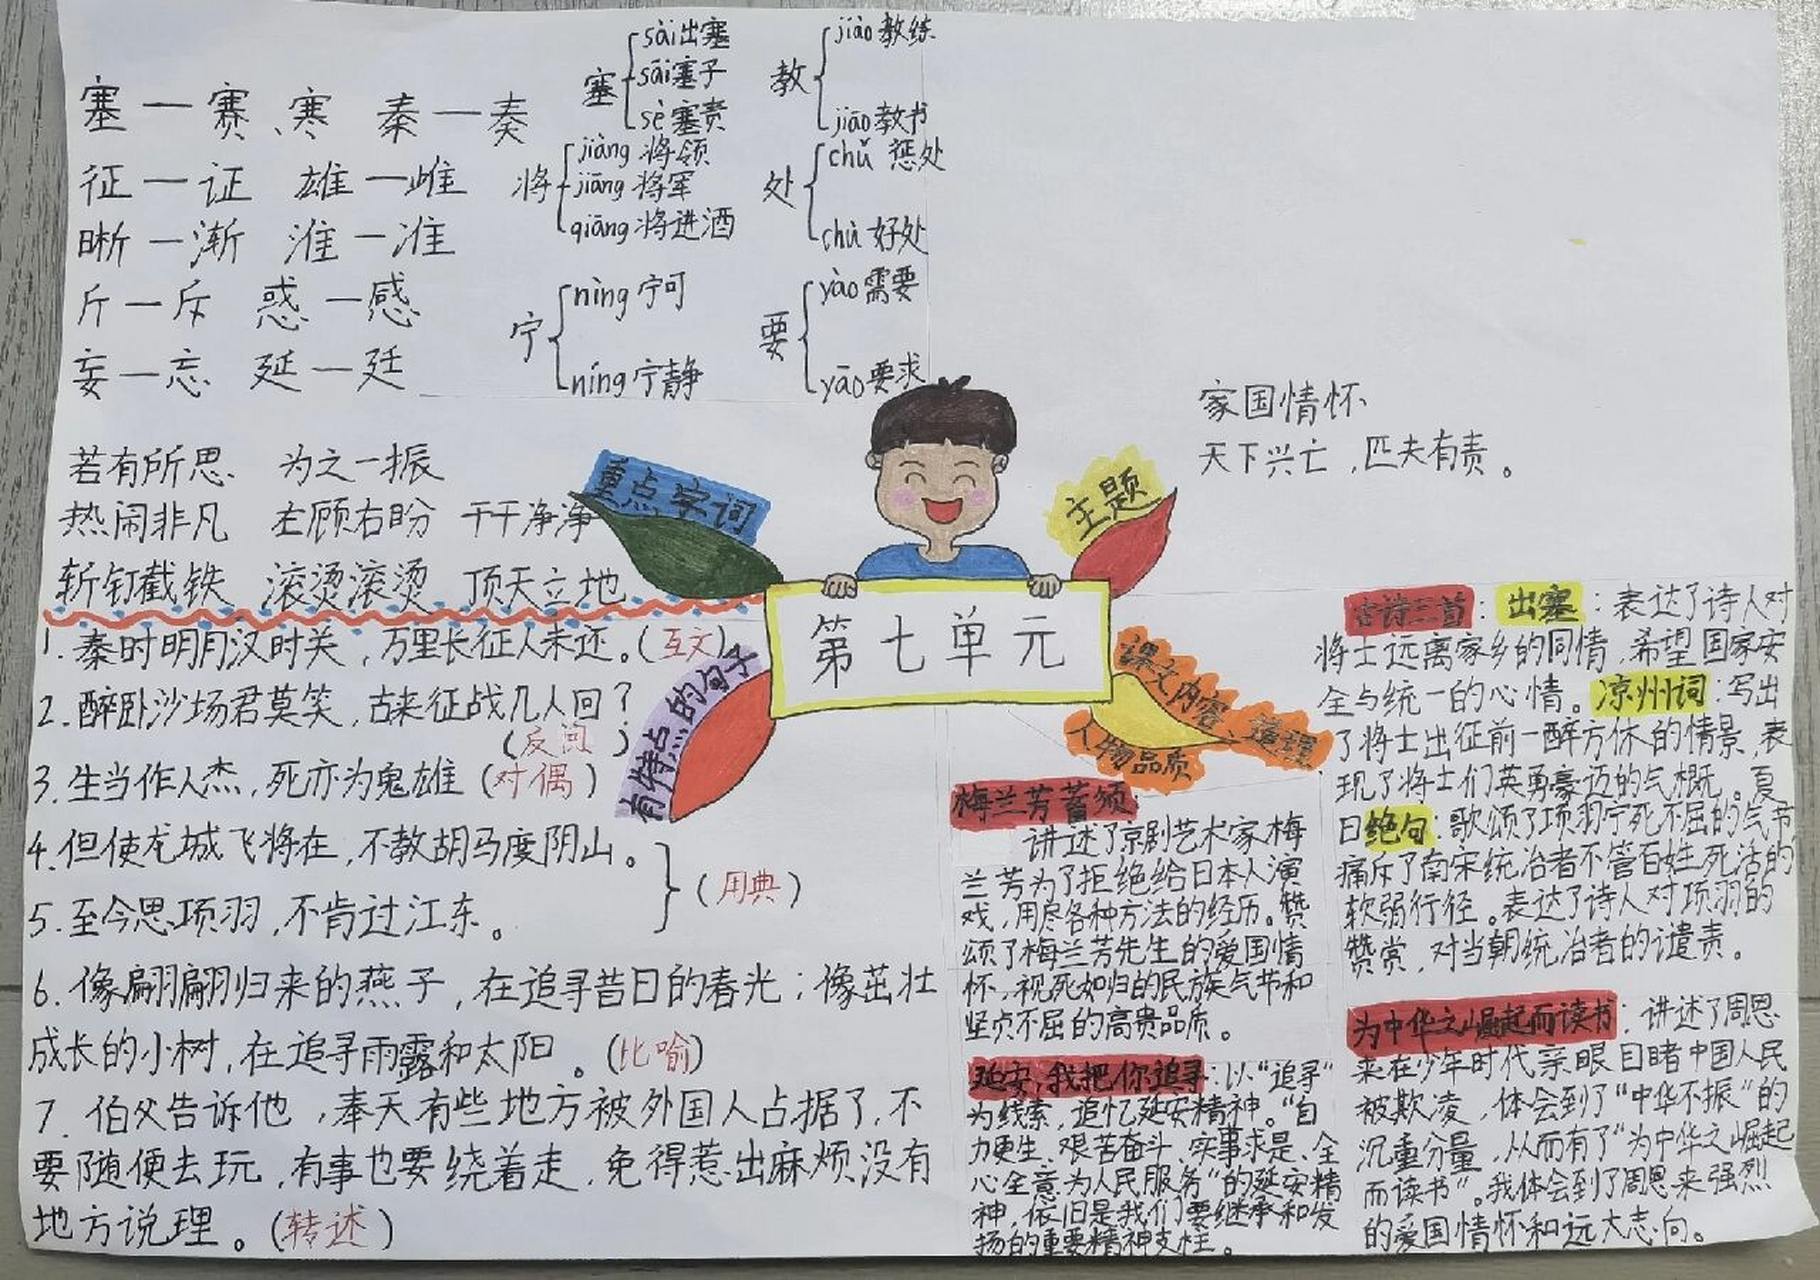 塞一赛、寒 秦一奏
征一证 雄一雌
晰一渐 淮一准
斤一斥 惑一感
妄一忘 延一廷
塞
sài出塞
sāi塞子
sè塞责
将
jiàng 将领
jiāng 将军
qiāng 将进酒
宁
nìng 宁可
níng 宁静
教
jiào 教练
jiāo 教书
处
chǔ 惩处
chù 好处
要
yào 需要
yāo 要求
若有所思 为之一振
热闹非凡 左顾右盼 干干净净
斩钉截铁 滚烫滚烫 顶天立地
重点字词
主题
家国情怀
天下兴亡,匹夫有责。
第七单元
有特点的句子
1. 秦时明月汉时关,万里长征人未还。(互文)
2. 醉卧沙场君莫笑,古来征战几人回?
(反问)
3. 生当作人杰,死亦为鬼雄 (对偶)
4. 但使龙城飞将在,不教胡马度阴山。
5. 至今思项羽,不肯过江东。
(用典)
6. 像翩翩归来的燕子,在追寻昔日的春光;像茁壮
成长的小树,在追寻雨露和太阳。(比喻)
7. 伯父告诉他,奉天有些地方被外国人占据了,不
要随便去玩,有事也要绕着走,免得惹出麻烦没有
地方说理。(转述)
课文内容、道理
人物品质
梅兰芳蓄须:
讲述了京剧艺术家梅
兰芳为了拒绝给日本人演
戏,用尽各种方法的经历。赞
颂了梅兰芳先生的爱国情
怀,视死如归的民族气节和
坚贞不屈的高贵品质。
延安,我把你追寻:以“追寻”
为线索,追忆延安精神。“自
力更生、艰苦奋斗、实事求是、全
心全意为人民服务”的延安精
神,依旧是我们要继承和发
扬的重要精神支柱。
古诗三首:出塞:表达了诗人对
将士远离家乡的同情,希望国家安
全与统一的心情。凉州词:写出
了将士出征前一醉方休的情景,表
现了将士们英勇豪迈的气概。夏
日绝句:歌颂了项羽宁死不屈的气节,
痛斥了南宋统治者不管百姓死活的
软弱行径。表达了诗人对项羽的
赞赏,对当朝统治者的谴责。
为中华之崛起而读书:讲述了周恩
来在少年时代亲眼目睹中国人民
被欺凌,体会到了“中华不振”的
沉重分量,从而有了“为中华之崛起
而读书”。我体会到了周恩来强烈
的爱国情怀和远大志向。